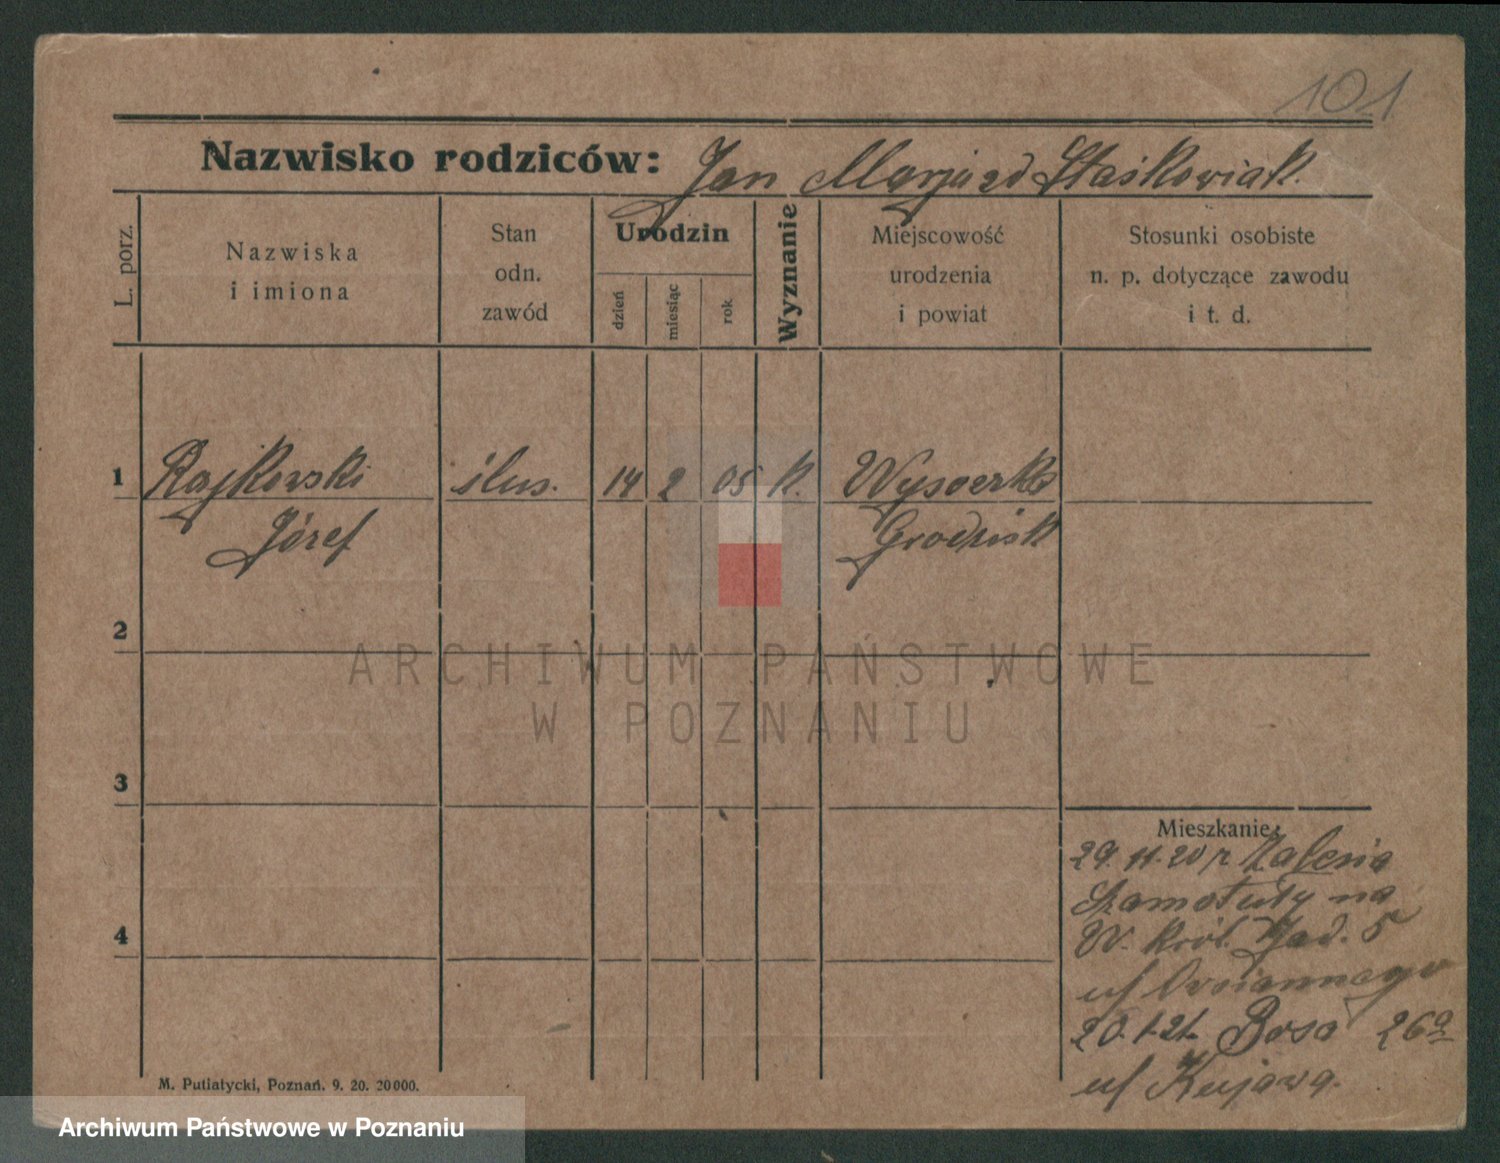 101
Nazwisko rodziców: Jan Marja zd Staśkowiak.
L. porz.
Nazwiska
i imiona
Stan
odn.
zawód
Urodzin
dzień
miesiąc
rok
Wyznanie
Miejscowość
urodzenia
i powiat
Stosunki osobiste
n. p. dotyczące zawodu
i t. d.
1 Rajkowski ślus. 14 2 05 k. Wysoczka
Józef Grodzisk
2
ARCHIWUM PAŃSTWOWE
W POZNANIU
3
Mieszkanie:
29.11.20 r Zalesia
Szamotuły na
W. Król. Jad. 5
uf
4
20.1.21. Bosa 26a
uf Kujawa.
M. Putiatycki, Poznań. 9. 20. 20000.
Archiwum Państwowe w Poznaniu